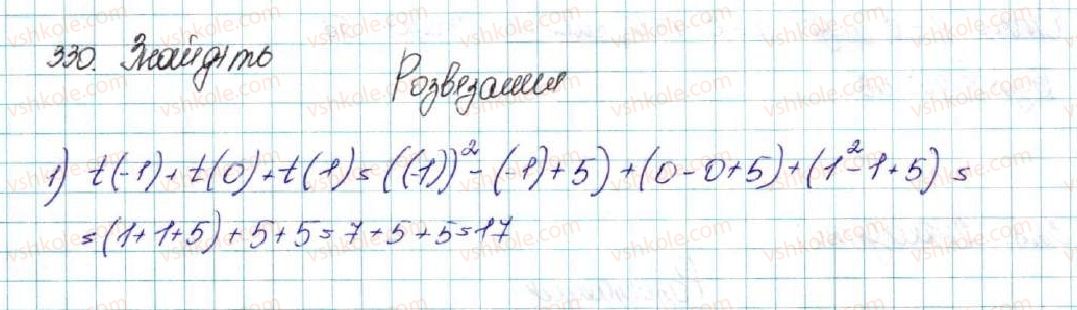 330. Знайдіть
Розв'язання
1) t(-1) + t(0) + t(1) = ((-1))² - (-1) + 5) + (0 - 0 + 5) + (1² - 1 + 5) =
= (1 + 1 + 5) + 5 + 5 = 7 + 5 + 5 = 17